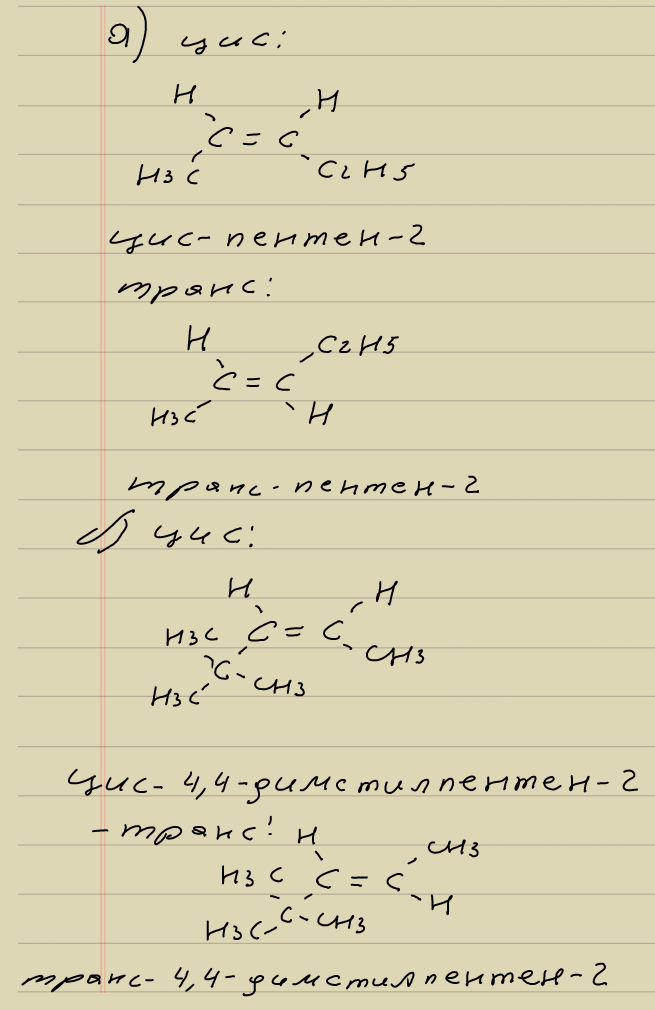 а) цис:
H H
C = C
H3C C2H5
цис-пентен-2
транс:
H C2H5
C = C
H3C H
транс-пентен-2
б) цис:
H H
H3C C = C
C CH3
H3C CH3
цис-4,4-диметилпентен-2
-транс:
H CH3
H3C C = C
C H
H3C CH3
транс-4,4-диметилпентен-2